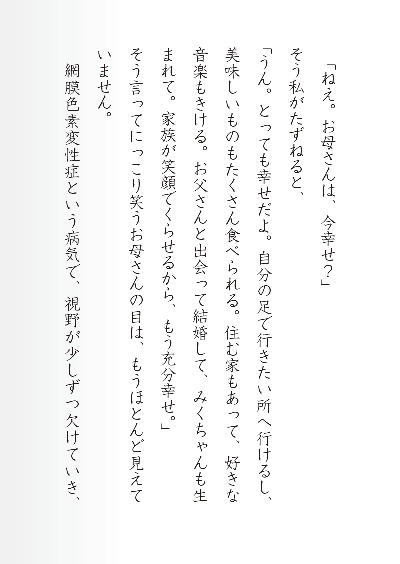 「ねえ。お母さんは、今幸せ？」
そう私がたずねると、
「うん。とっても幸せだよ。自分の足で行きたい所へ行けるし、
美味しいものもたくさん食べられる。住む家もあって、好きな
音楽もきける。お父さんと出会って結婚して、みくちゃんも生
まれて。家族が笑顔でくらせるから、もう充分幸せ。」
そう言ってにっこり笑うお母さんの目は、もうほとんど見えて
いません。
網膜色素変性症という病気で、視野が少しずつ欠けていき、